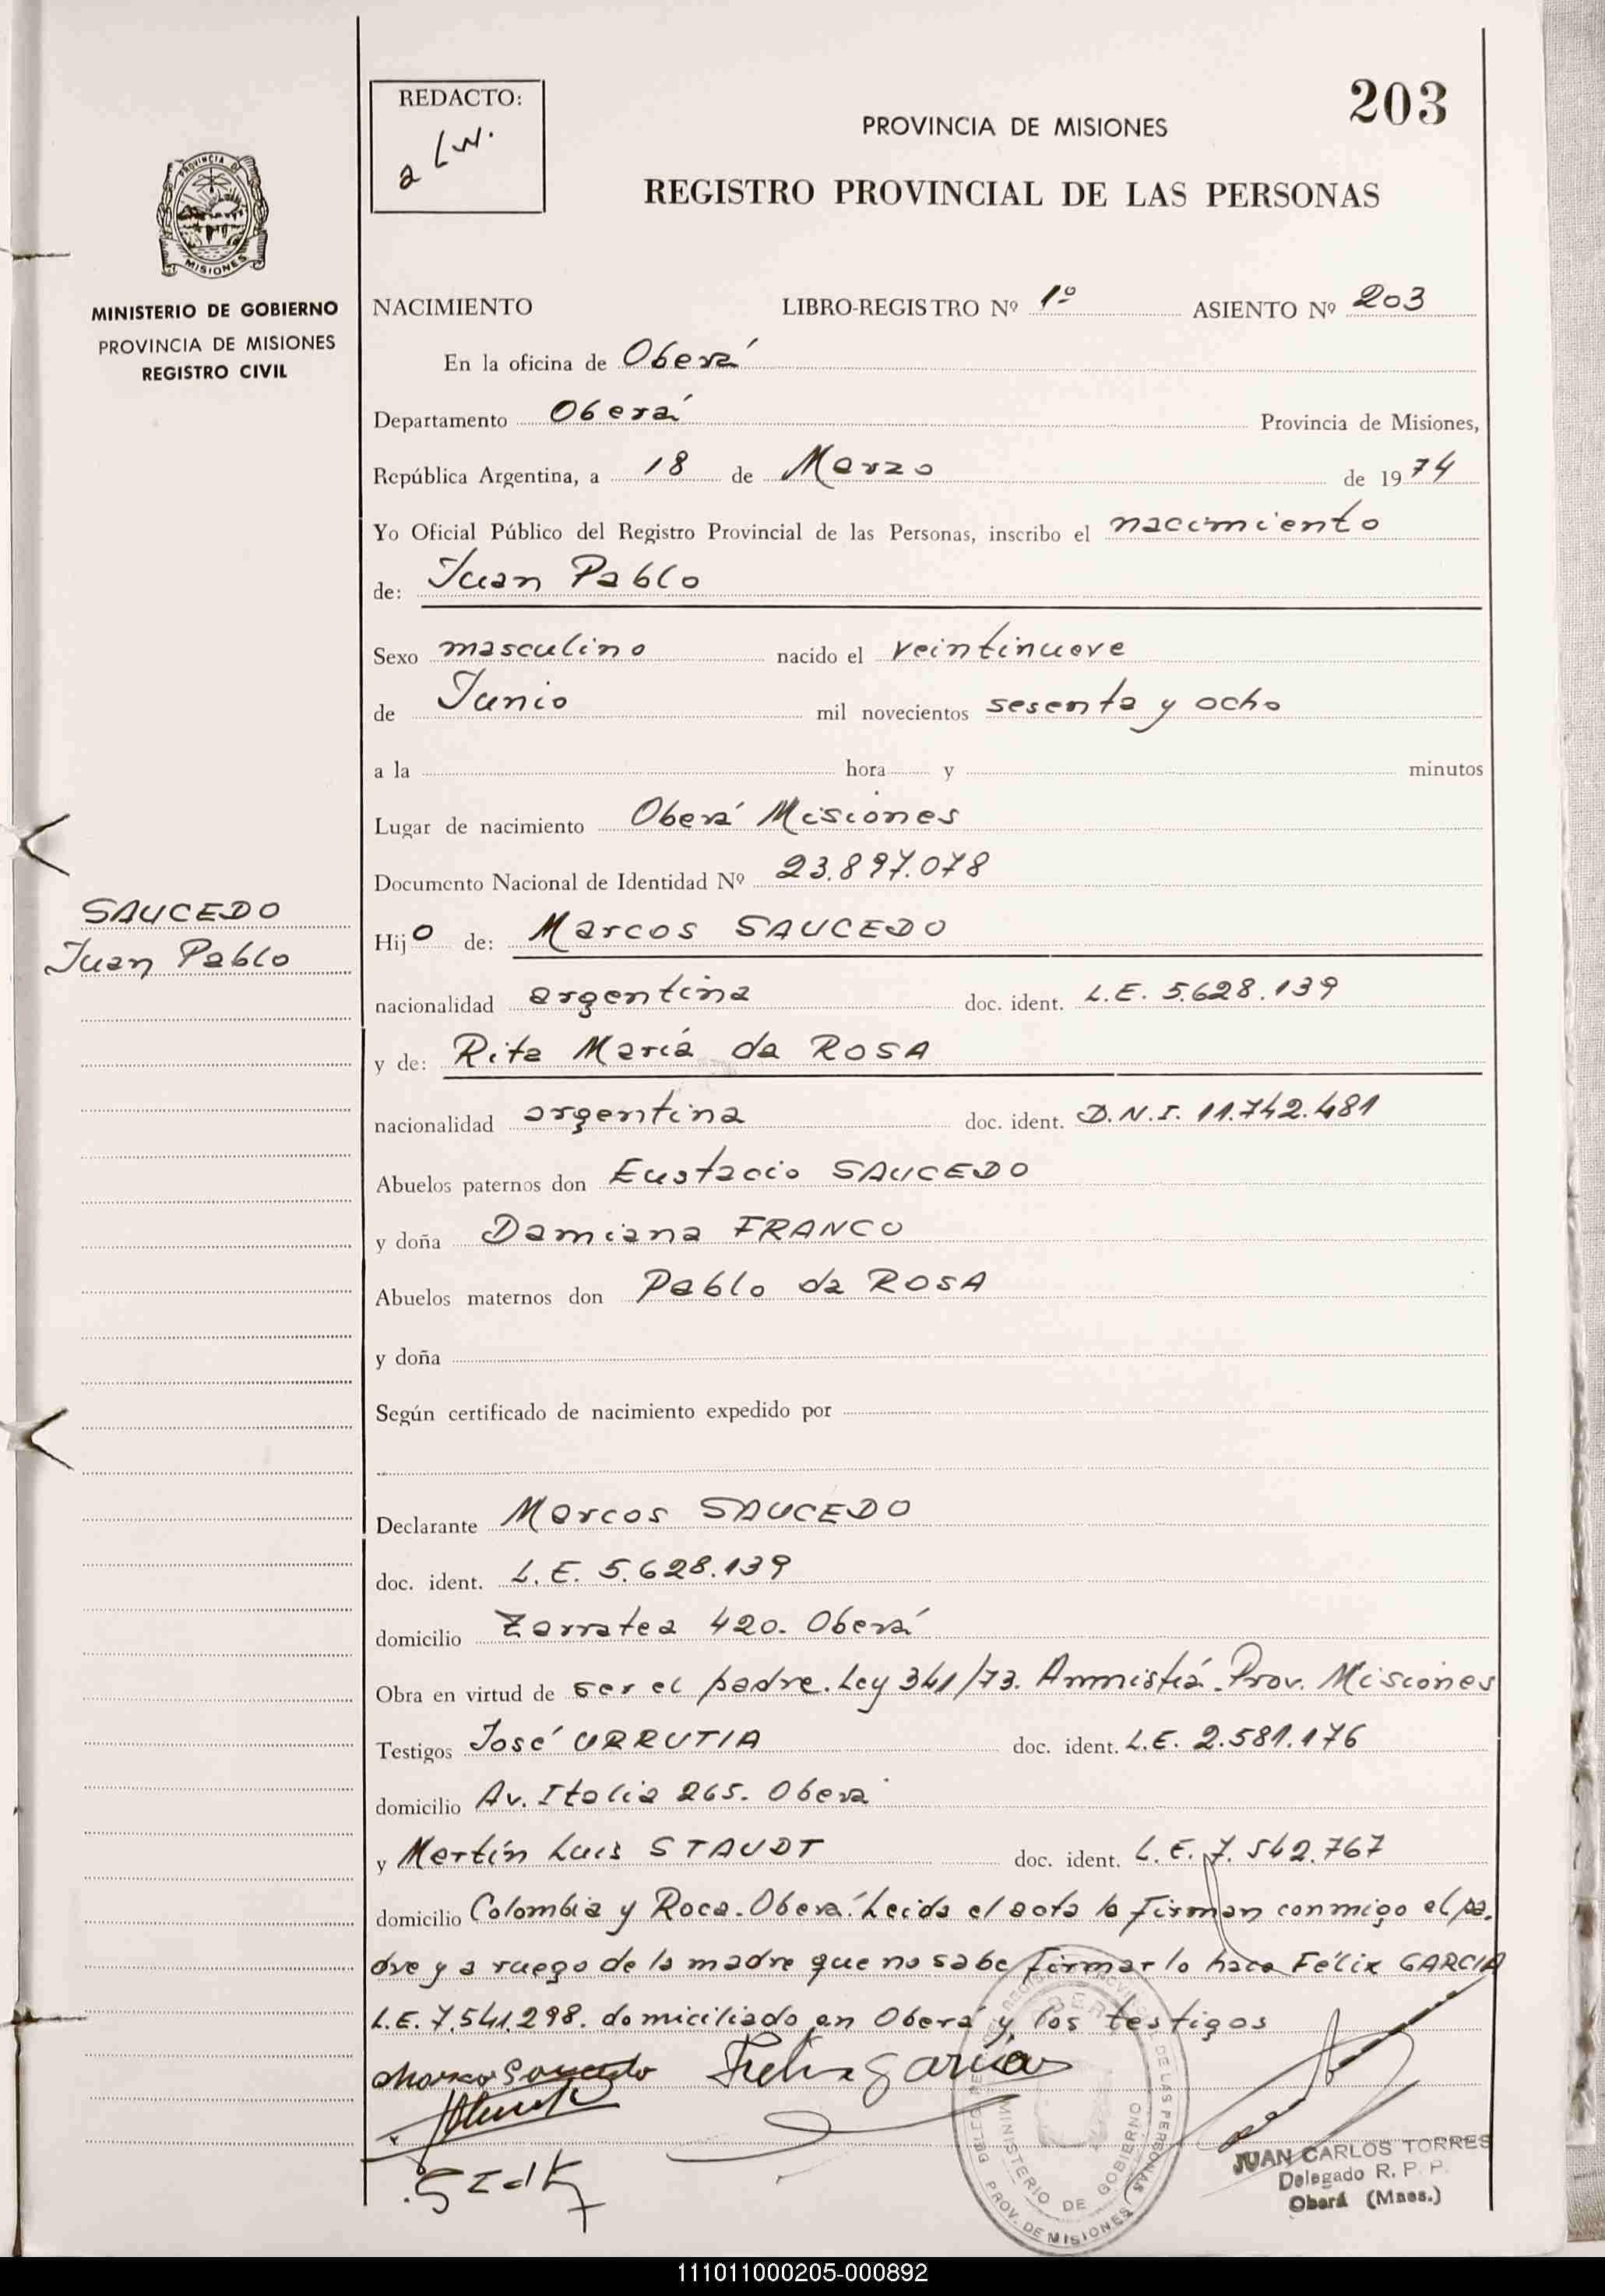 203
REDACTO:
PROVINCIA DE MISIONES
REGISTRO PROVINCIAL DE LAS PERSONAS
PROVINCIA DE
MISIONES
MINISTERIO DE GOBIERNO
PROVINCIA DE MISIONES
REGISTRO CIVIL
NACIMIENTO LIBRO-REGISTRO Nº 1º ASIENTO Nº 203
En la oficina de Oberá
Departamento Oberá Provincia de Misiones,
República Argentina, a 18 de Marzo de 1974
Yo Oficial Público del Registro Provincial de las Personas, inscribo el nacimiento
de: Juan Pablo
Sexo masculino nacido el veintinueve
de Junio mil novecientos sesenta y ocho
a la hora y minutos
Lugar de nacimiento Oberá Misiones
Documento Nacional de Identidad Nº 23.897.078
SAUCEDO
Juan Pablo
Hijo de: Marcos SAUCEDO
nacionalidad argentina doc. ident. L.E. 5.628.139
y de: Rita María da ROSA
nacionalidad argentina doc. ident. D.N.I. 11.742.481
Abuelos paternos don Eustacio SAUCEDO
y doña Damiana FRANCO
Abuelos maternos don Pablo da ROSA
y doña
Según certificado de nacimiento expedido por
Declarante Marcos SAUCEDO
doc. ident. L.E. 5.628.139
domicilio Zarratea 420. Oberá
Obra en virtud de ser el padre. Ley 341/73. Anmistiá. Prov. Misiones
Testigos José URRUTIA doc. ident. L.E. 2.581.176
domicilio Av. Italia 265. Oberá
y Martín Luis STAUDT doc. ident. L.E. 7.542.767
domicilio Colombia y Roca. Oberá. Leida el acta la firman conmigo el pa.
dre y a ruego de la madre que no sabe firmar lo hace Félix GARCIA
L.E. 7.541.298. domiciliado en Oberá y los testigos
Felix Garcia
MINISTERIO DE GOBIERNO
PROV. DE MISIONES
JUAN CARLOS TORRES
Delegado R. P. P.
Oberá (Mnes.)
111011000205-000892